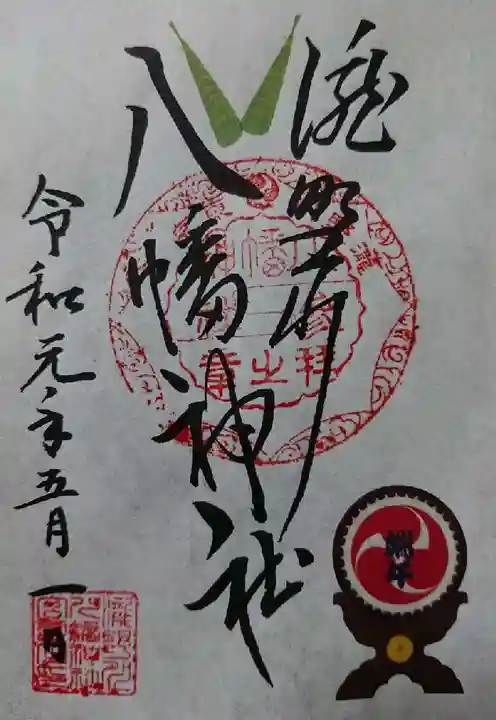 瀧野川
八幡神社
令和元年五月一日
端午